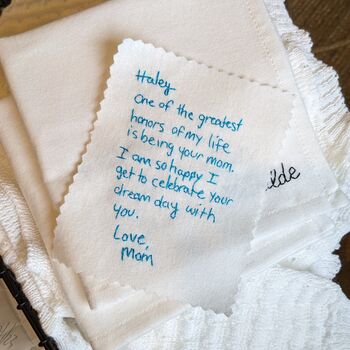 Haley
One of the greatest
honors of my life
is being your mom.
I am so happy I
get to celebrate your
dream day with
you.
Love,
Mom